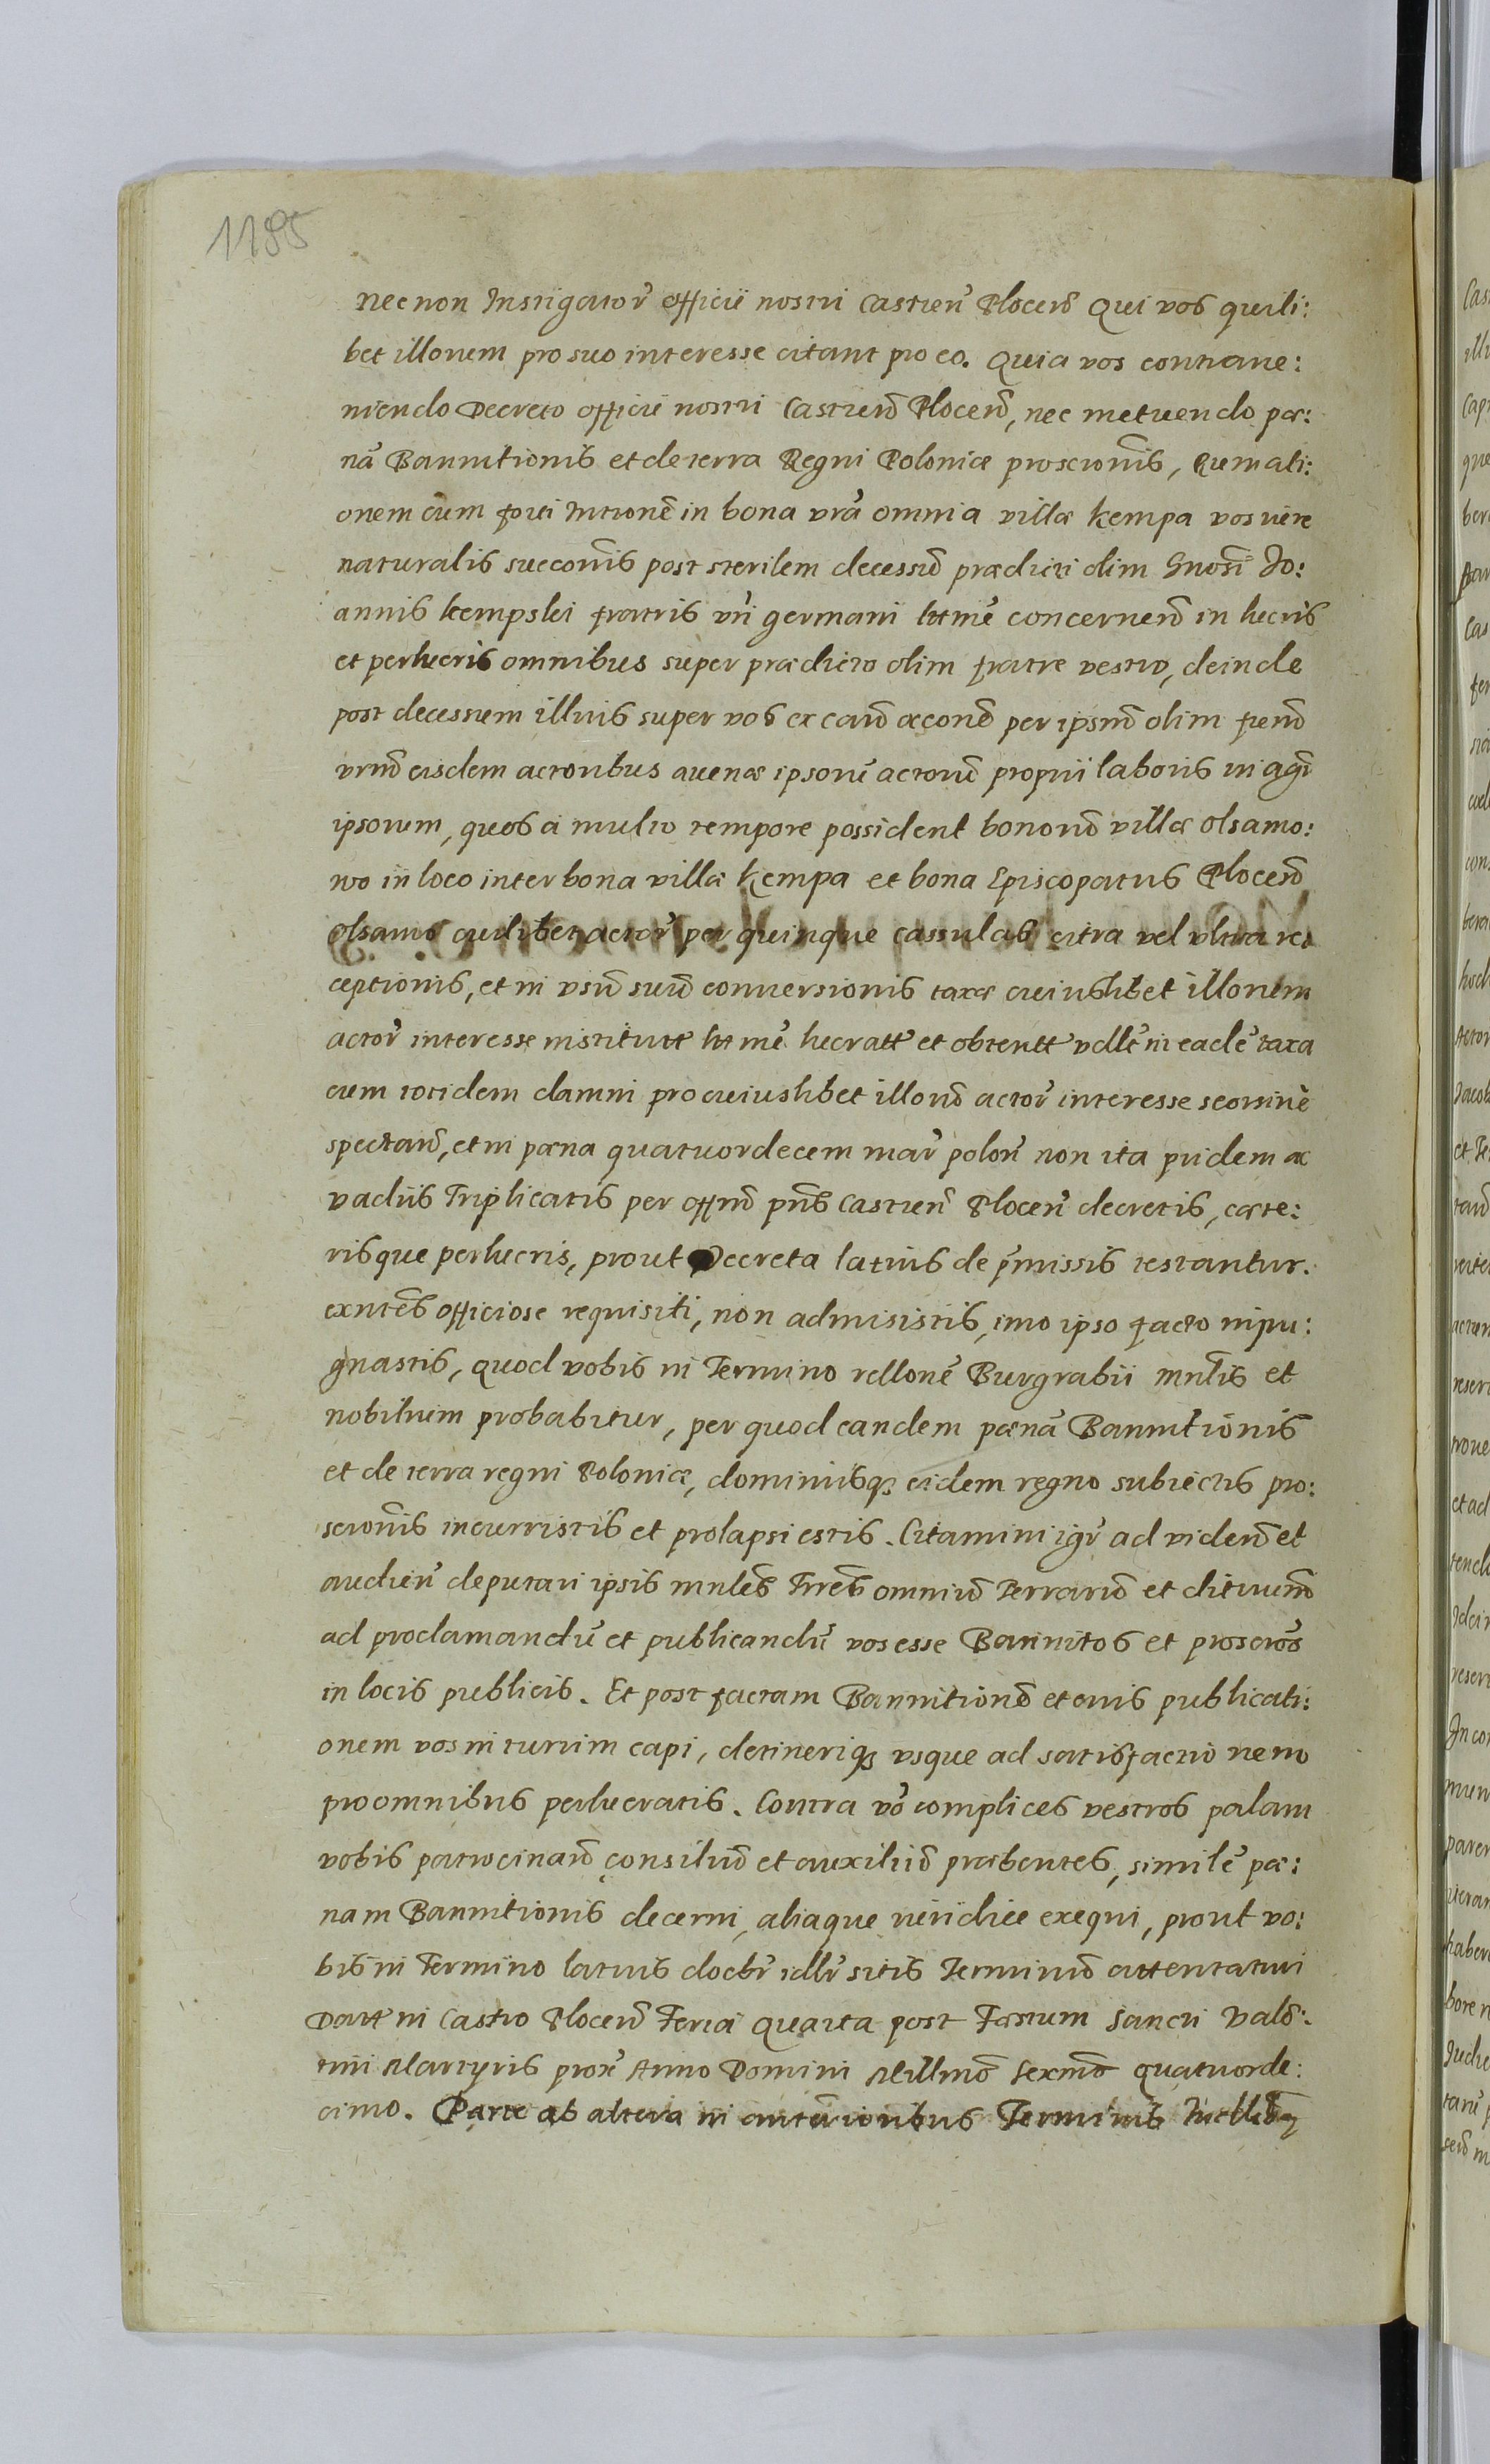 1185
nec non Instigator officii nostri Castren Plocen Qui vos quili:
bet illorum pro suo interesse citant pro eo. Quia vos contraue:
niendo Decreto officii nostri Castren Plocen, nec metuendo pœ:
nã Bannitionis et de terra Regni Poloniæ proscrionis, Rumati:
onem cum forti Intromē in bona vrã omnia villæ Kempa vos iure
naturalis succonis post sterilem decessum prædicti olim Gnosi Jo:
annis Kempski fratris vri germani lttmē concernen in lucris
et perlucris omnibus super prædicto olim fratre vestro, deinde
post decessum illius super vos ex causa æconē per ipsum olim frem
vrm eisdem actoribus auenæ ipsorū actorū proprii laboris in agr
ipsorum, quos à multo tempore possident bonorū villæ Olsamo:
wo in loco inter bona villæ Kempa et bona Episcopatus Plocen
Olsamo cuilibet actor per quinque cassulas citra vel vltra re:
ceptionis, et in vsū suū conuersionis taxæ cuiuslibet illorum
actor interesse instituti lttmē lucratt et obtentt vdllt in eadē taxa
cum totidem damni pro cuiuslibet illorū actor interesse seorsiuè
spectan, et in pœna quatuordecem mar polon non ita pridem ac
vadiis Triplicatis per offm pns Castren Plocen decretis, cæte:
risque perlucris, prout Decreta latius de pmissis testantur.
exntes officiose requisiti, non admisistis, imo ipso facto inpu:
gnastis, quod vobis in Termino rellone Burgrabii mnlis et
nobilium probabitur, per quod eandem pœnã Bannitionis
et de terra regni Poloniæ, dominiisq3 eidem regno subiectis pro:
scrionis incurristis et prolapsi estis. Citamini igr ad viden et
audien deputari ipsis mnles Trres omnium Terrarum et districtuum
ad proclamandū et publicandū vos esse Bannitos et proscros
in locis publicis. Et post factam Bannitionē et eius publicati:
onem vos in turrim capi, detineriq3 vsque ad satisfactionem
pro omnibus perlucratis. Contra vo complices vestros palam
vobis patrocinan consilium et auxilium præbentes, similē pœ:
nam Bannitionis decerni, aliaque iuridice exequi, prout vo:
bis in Termino latius docebr idllr sitis Terminum attentaturi
Datt in Castro Plocen Feria Quarta post Festum Sancti Valē:
tini Martyris prox Anno Domini Millmo Sexmo quatuorde:
cimo. Parte ab altera in anterioribus Terminis